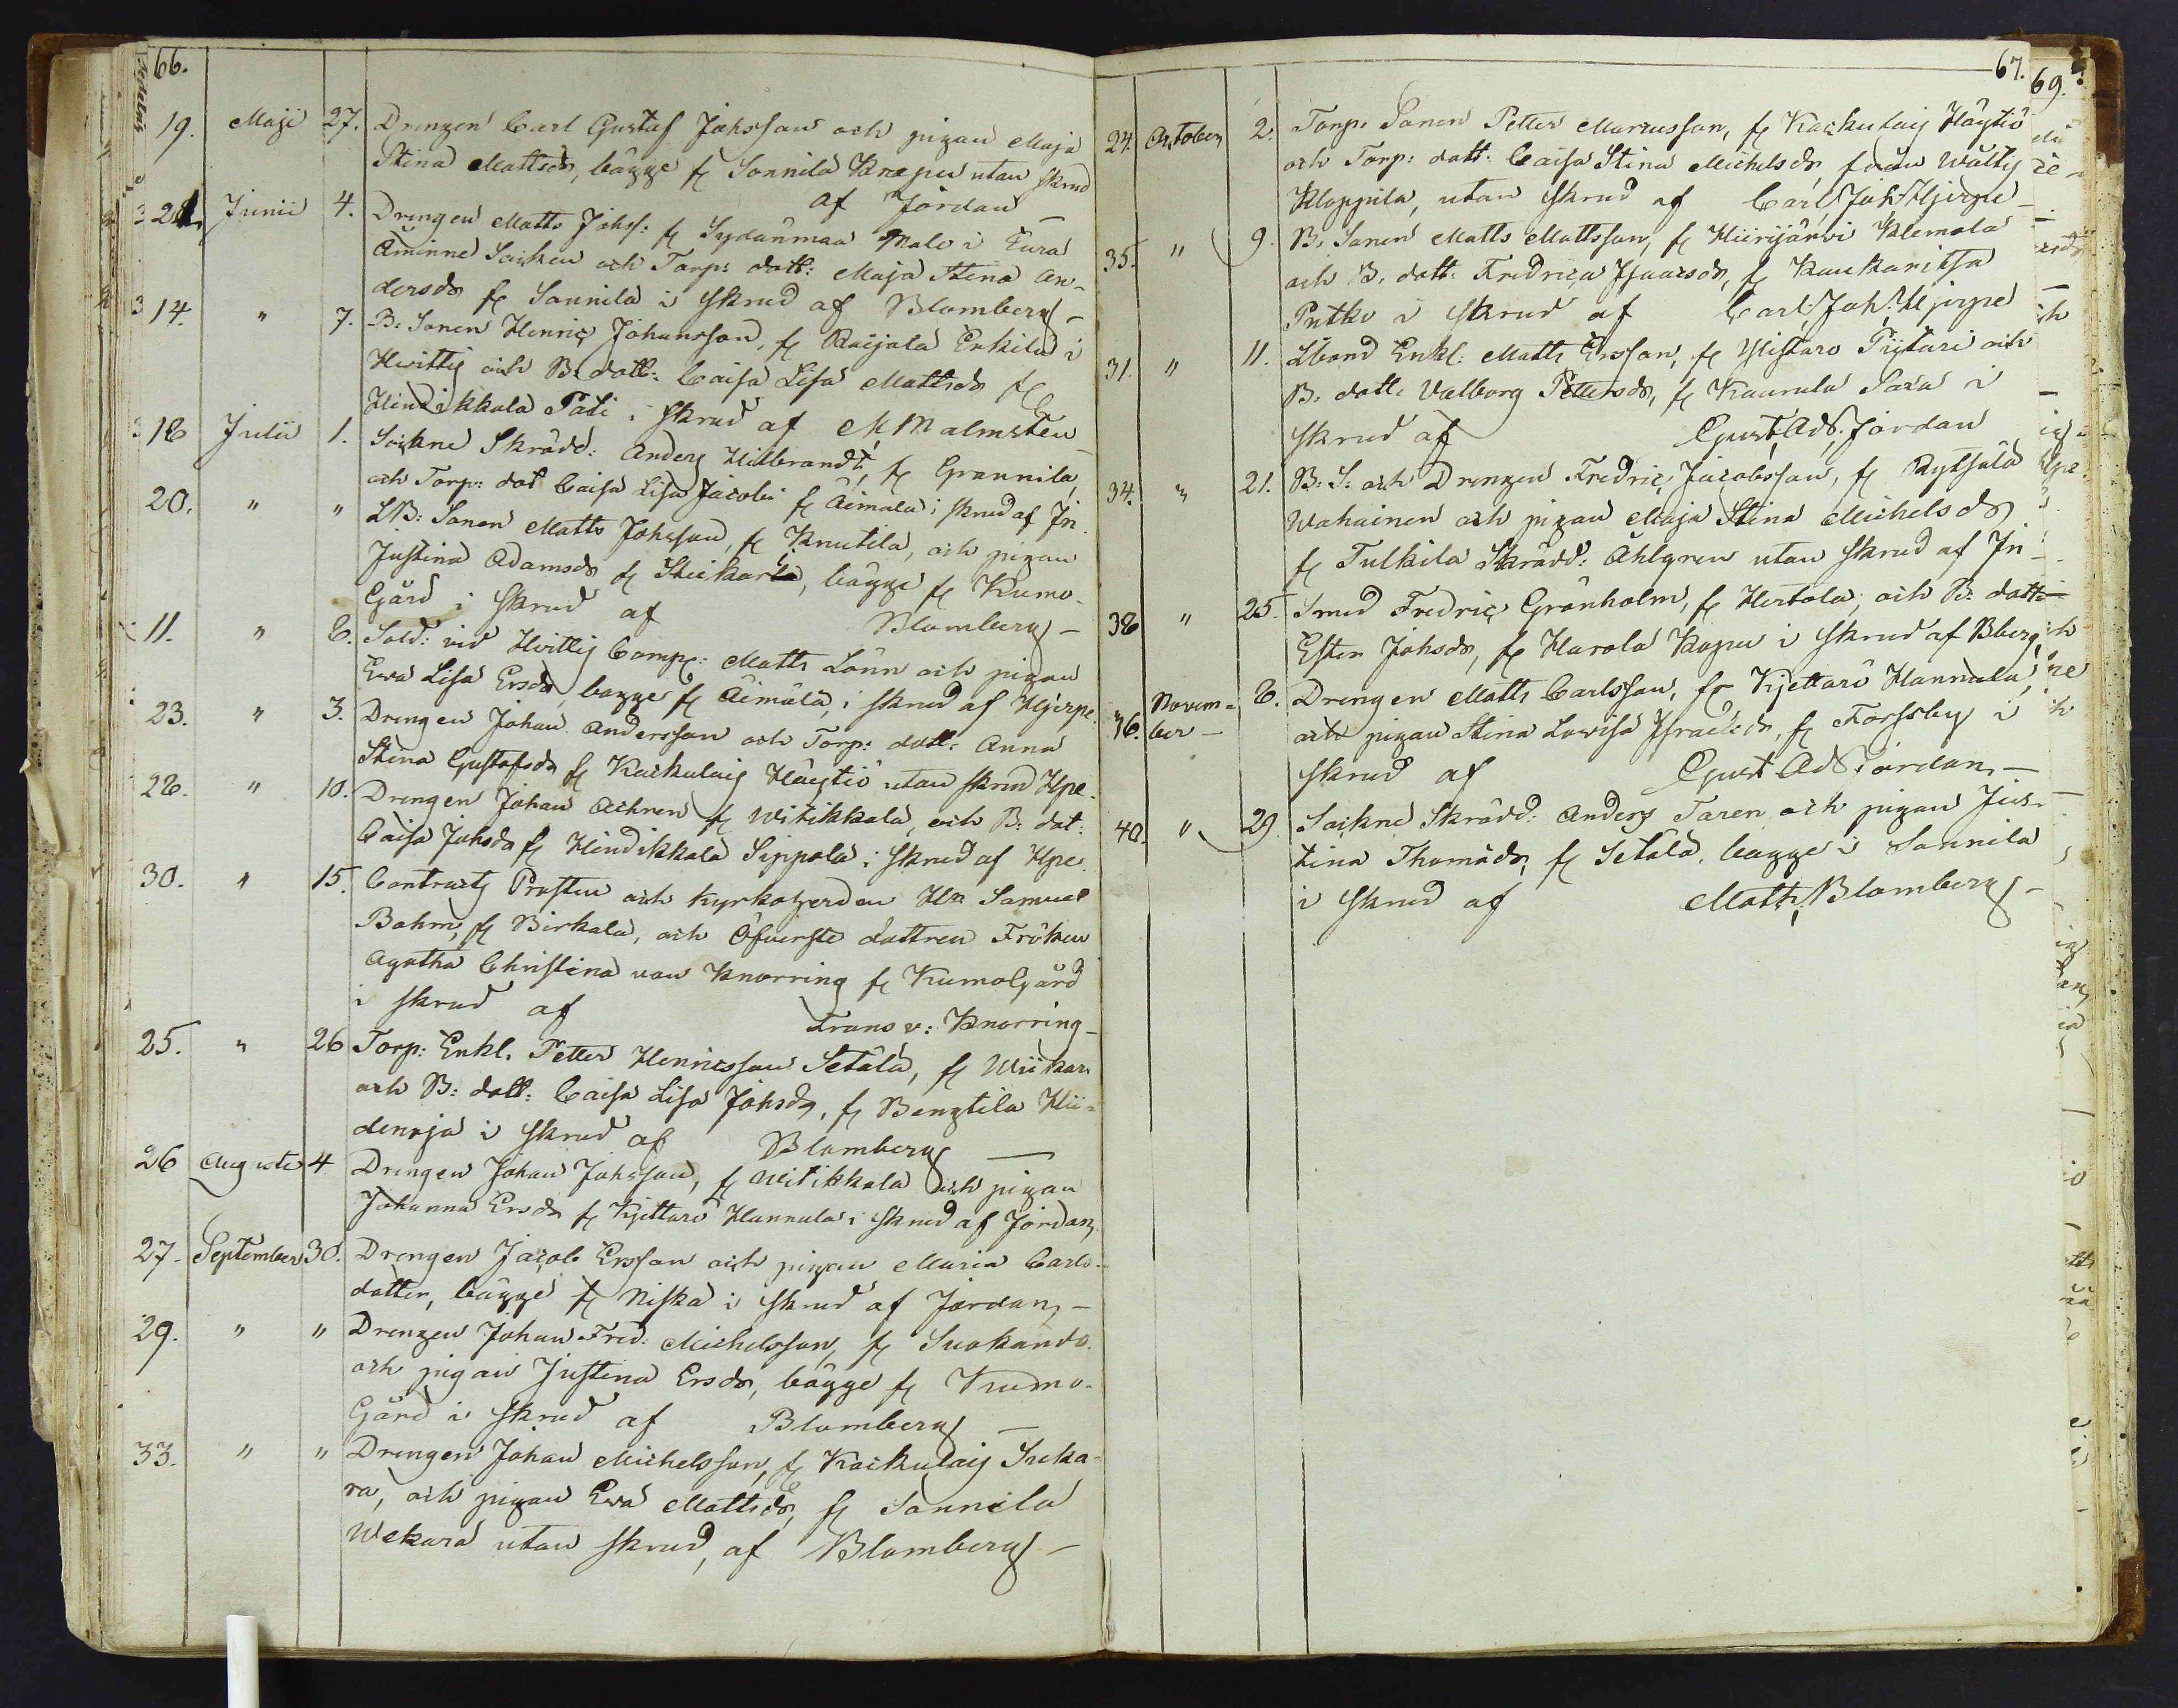 66.
19. Maji 27. Drengen Carl Gustaf Johsson och pigan Maja
Stina Mattsdr, bägge fr Sonnila Krapu utan skrud
af Jordan
21. Junii 4. Drengen Matts Johss: fr Sydänmaa Palo i Eura
Åminne Socken och Torp: dott: Maja Stina An-
dersdr fr Sonnila i skrud af Blomberg –
14. " 7. B: Sonen Henric Johansson, fr Raijala Erkila i
Hvittis och B: dott: Caisa Lisa Mattsdr fr
Hindikkala Pati i skrud af M Malmsten –
18 Julii 1. Sockne Skrädd: Anders Hilbrandt, fr Grannila,
och Torp: dot Caisa Lisa Jacobi fr Äimälä i skrud af Jn
20. " " LB: Sonen Matts Johsson, fr Knutila, och pigan
Justina Adamsdr fr Stickarla, bägge fr Kumo-
Gård i skrud af Blomberg –
11. " 2. Sold: vid Hvittis Comp: Matts Lönn och pigan
Ewa Lisa Ersdr, bägge fr Äimälä, i skrud af Hjerpe.
23. " 3. Drengen Johan Andersson och Torp: dott: Anna
Stina Gustafsdr fr Kackulais Häytiö utan skrud Hpe.
28. " 10. Drengen Johan Achren fr Witikkala, och B: dot:
Caisa Johsdr fr Hindikkala Sippola i skrud af Hpe.
30. " 15. Contracts Prosten och Kyrkoherden Hr Samuel
Bohm, fr Birkala, och Öfverste dottren Fröken
Agatha Christina von Knorring fr KumoGård
i skrud af Frans v: Knorring –
25. " 26 Torp: Enkl. Petter Henricsson Setälä, fr Wiikari
och B: dott: Caisa Lisa Johsdr, fr Benztila Hii-
denoja i skrud af Blomberg –
26 Augusti 4 Drengen Johan Johsson, fr Witikkala och pigan
Johanna Ersdr fr Kjettarö Hannula i skrud af Jordan,
27. September 30. Drengen Jacob Ersson och pigan Maria Carls-
dotter, bägge fr Niska i skrud af Jordan, –
29. " " Drengen Johan Fred: Michelsson, fr Suokando
och pigan Justina Ersdr, bägge fr Kumo-
Gård i skrud af Blomberg –
33. " " Drengen Johan Michelsson, fr Kackulais Suka-
ra, och pigan Ewa Mattsdr, fr Sonnila
Wekara utan skrud, af Blomberg –
67.
24. October 2. Torp: Sonen Petter Marcusson, fr Kackulais Häytiö
och Torp: dott: Caisa Stina Michelsdr, från Wälty
Kloppila, utan skrud af Carl Joh: Hjerpe –
35. " 9. B: Sonen Matts Mattsson, fr Hiirijärvi Klemola
och B. dott: Fredrica Isaacsdr, fr Kaukaritsa
Prittko i skrud af Carl Joh: Hjerpe
31. " 11. Lbond Enkl: Matts Ersson, fr Ylistaro Piitari och
B: dott: Valborg Pettersdr, fr Kaurula Sara i
skrud af Gust: Ad: Jordan
34. " 21. B: S: och Drengen Fredric Jacobsson, fr Rytsälä
Wahainen och pigan Maja Stina Michelsdr
fr Tulkila Skrädd: Åhlgren utan skrud af Jn –
38 " 25. Smed Fredric Grönholm, fr Hertola, och B: dott:
Ester Johsdr, fr Harola Kapu i skrud af Bberg,
36. November – 8. Drengen Matts Carlsson, fr Kjettarö Hannula,
och pigan Stina Lovisa Israelsdr, fr Forssby i
skrud af Gust Ad Jordan, –
40. " 29 Sockne Skrädd: Anders Toren och pigan Jus-
tina Thomædr, fr Setälä, bägge i Sonnila
i skrud af Matts Blomberg –
69.